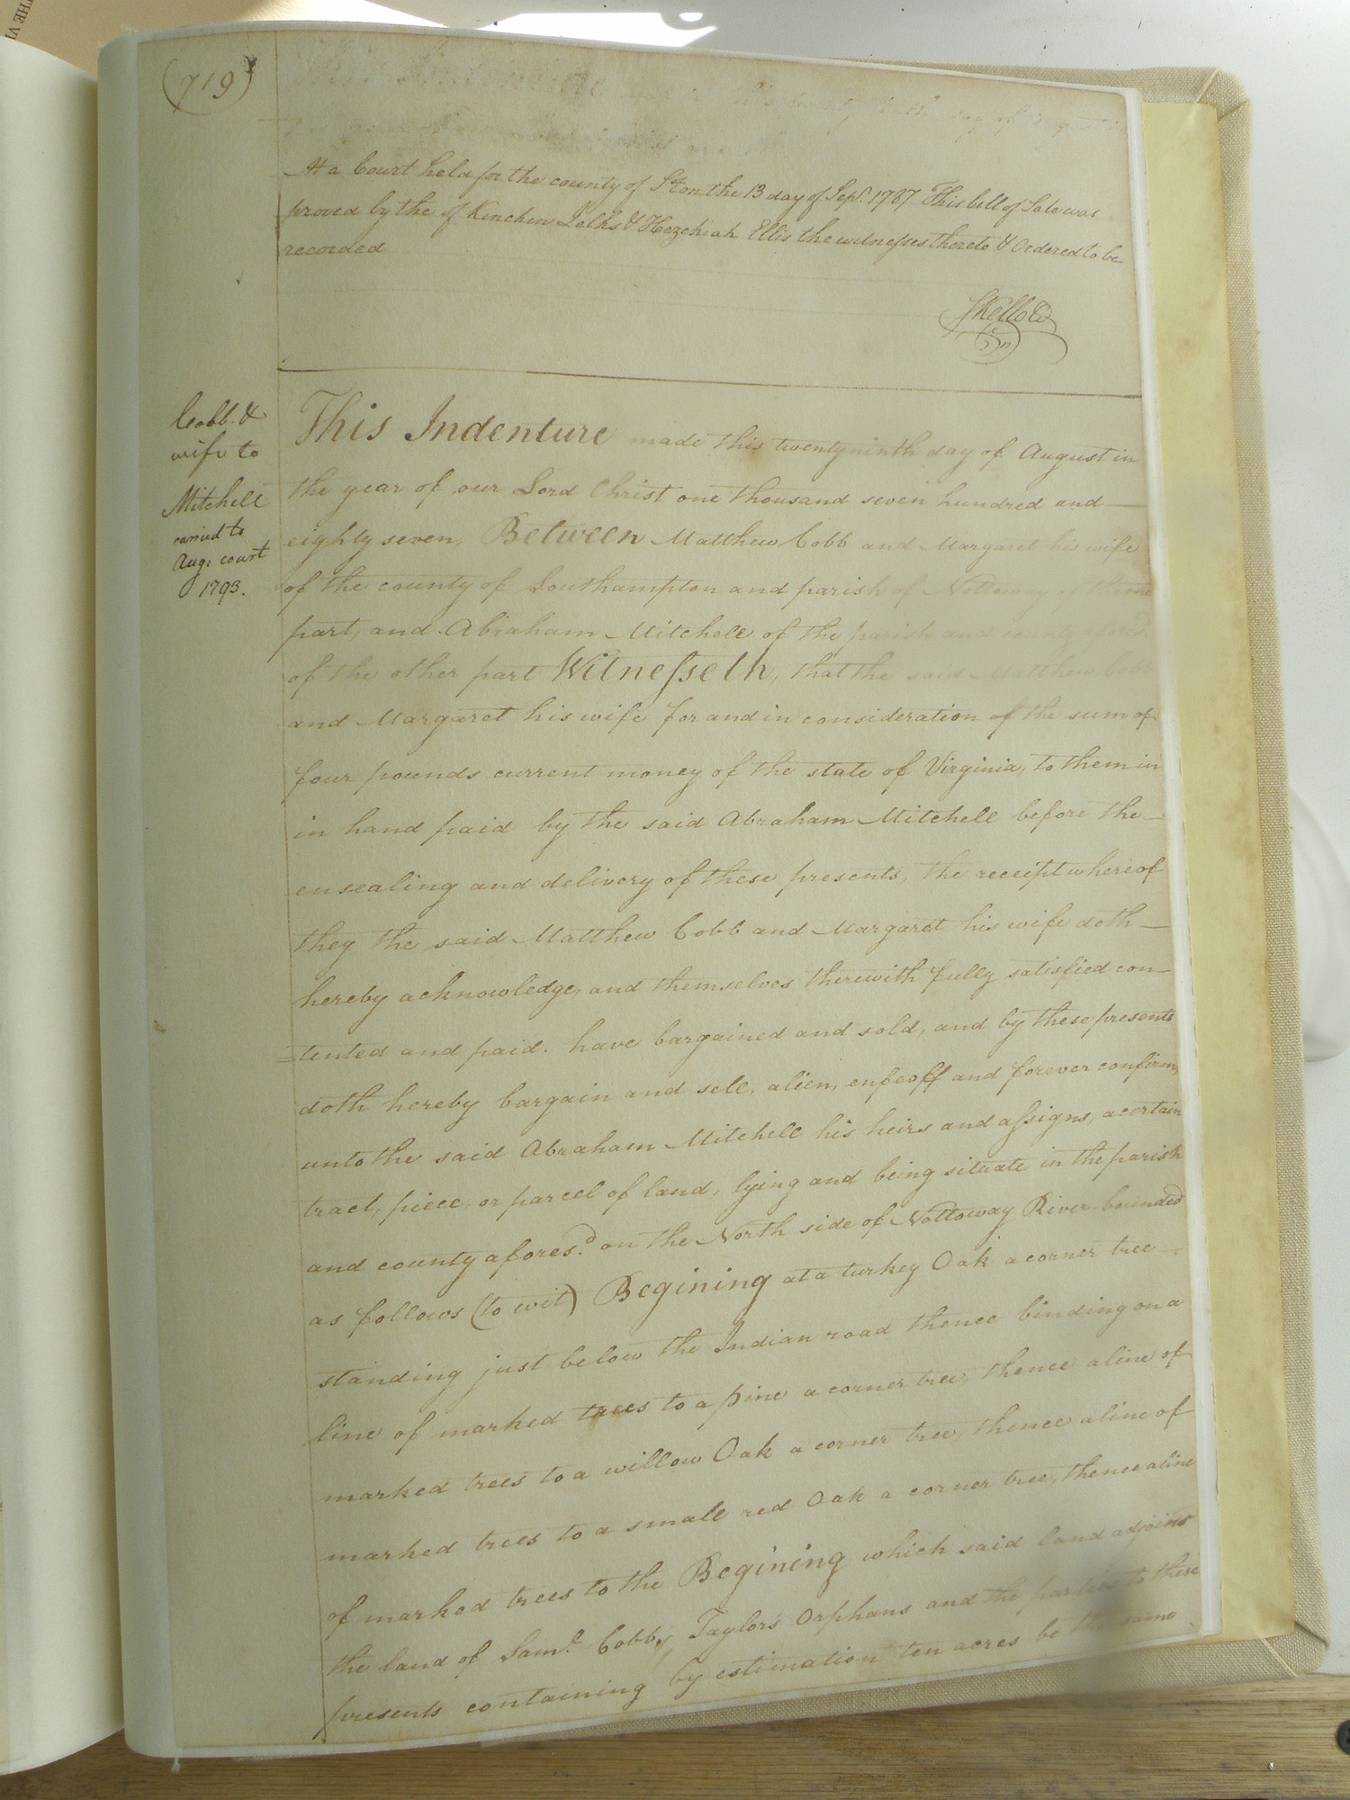 (719)
At a Court held for the county of Sᵗon the 13 day of Sepᵗ. 1787 This bill of Sale was
proved by the of Kinchen Jelks & Hezekiah Ellis the witnesses thereto & Ordered to be
recorded
Cobb. &
wife to
Mitchell
carried to
Aug: court
1793.
This Indenture made this twentyninth day of August in
the year of our Lord Christ one thousand seven hundred and
eighty seven, Between Matthew Cobb and Margaret his wife
of the county of Southampton and parish of Nottoway of the one
part, and Abraham Mitchell of the parish and county
of the other part Witnesseth, that the said Matthew Cobb
and Margaret his wife for and in consideration of the sum of
four pounds current money of the state of Virginia, to them in
in hand paid by the said Abraham Mitchell before the
ensealing and delivery of these presents, the receipt whereof
they the said Matthew Cobb and Margaret his wife doth
hereby acknowledge, and themselves therewith fully satisfied con-
tented and paid. have bargained and sold, and by these presents
doth hereby bargain and sell, alien, enfeoff and forever confirm,
unto the said Abraham Mitchell his heirs and assigns, a certain
tract, piece, or parcel of land, lying and being situate in the parish
and county afores.ᵈ on the North side of Nottoway River bounded
as follows (to wit) Begining at a turkey Oak a corner tree
standing just below the Indian road thence binding on a
line of marked trees to a pine a corner tree, thence a line of
marked trees to a willow Oak a corner tree, thence a line of
marked trees to a small red Oak a corner tree, thence a line
of marked trees to the Begining which said land adjoins
the land of Samˡ. Cobb, Taylor's Orphans and the parties to these
presents containing by estimation ten acres be the same